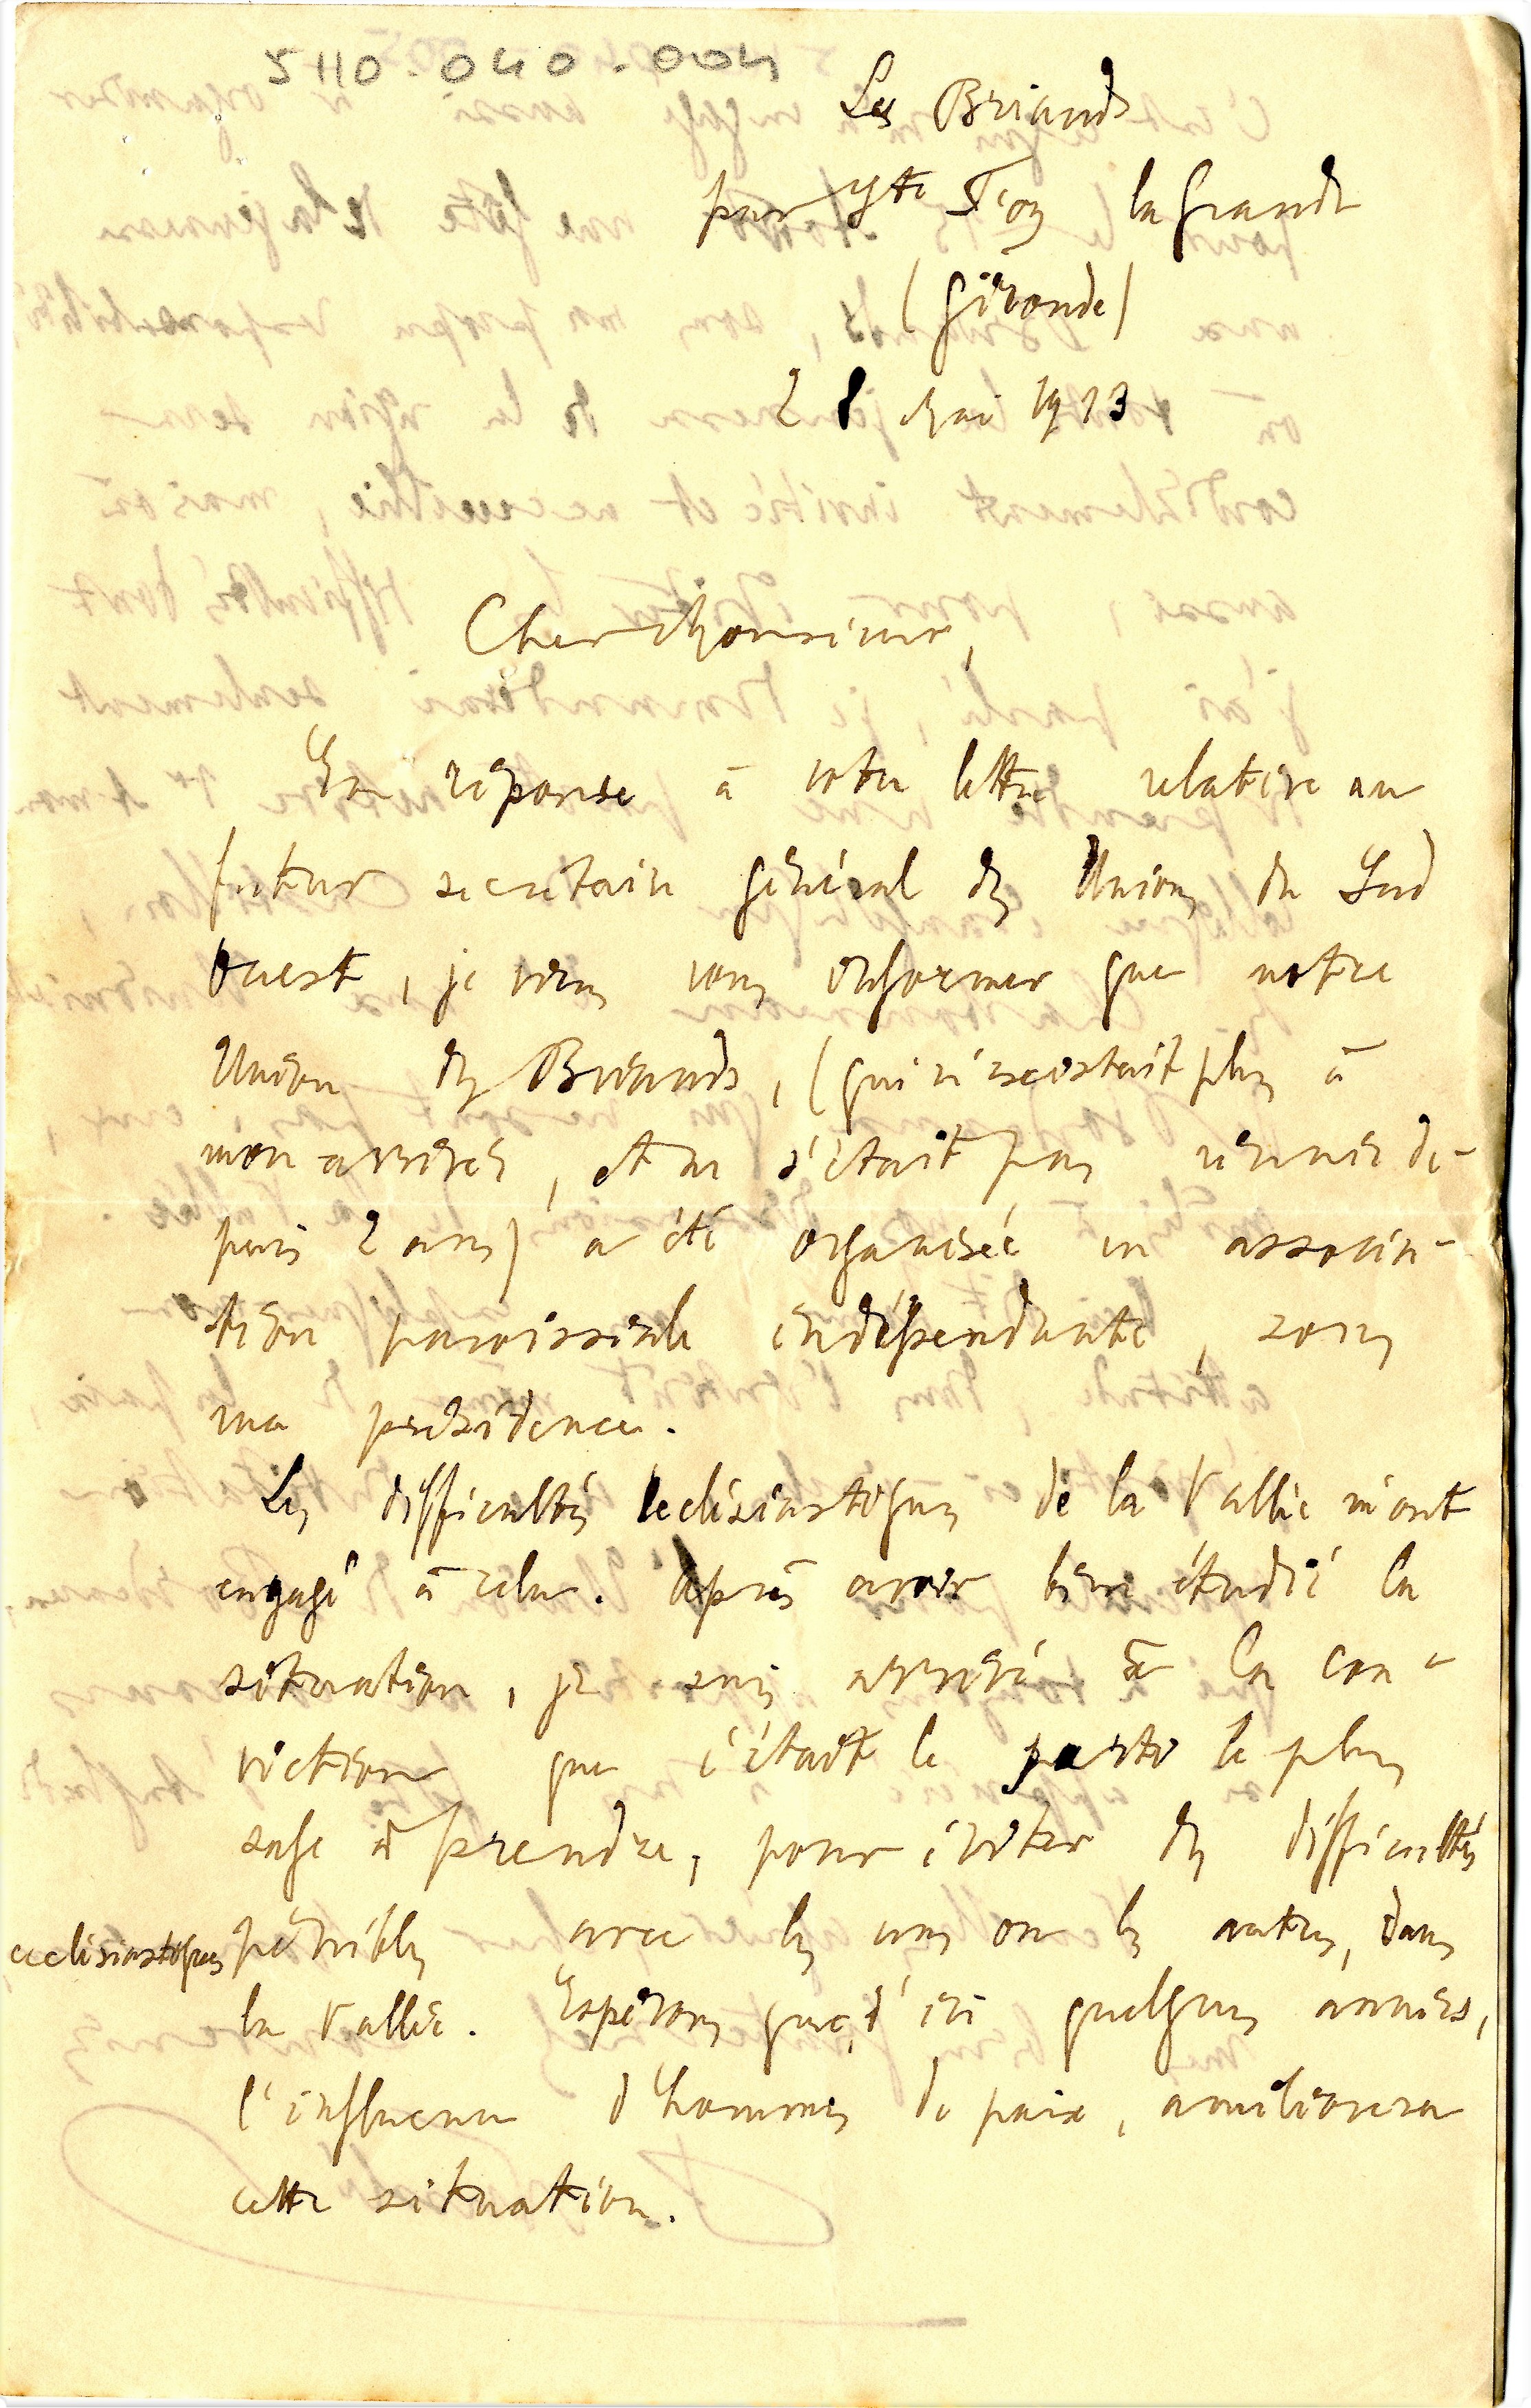 5110.040.004
Les Briands
par Ste Foy la Grande
(Gironde)
28 Mai 1913
Cher Monsieur,
En réponse à votre lettre relative au
futur secrétaire général des Unions du Sud
Ouest, je viens vous informer que notre
Union des Briands, (qui n'existait plus à
mon arrivée, et ne s'était pas réunie de-
puis 2 ans) a été organisée en associa-
tion paroissiale indépendante, sous
ma présidence.
Les difficultés ecclésiastiques de la Vallée m'ont
engagé à cela. Après avoir bien étudié la
situation, je suis arrivé à la con-
viction que c'était le parti le plus
sage à prendre, pour éviter des difficultés
ecclésiastiques pénibles avec les uns ou les autres, dans
la Vallée. Espérons que, d'ici quelques années,
l'influence d'hommes de paix, améliorera
cette situation.